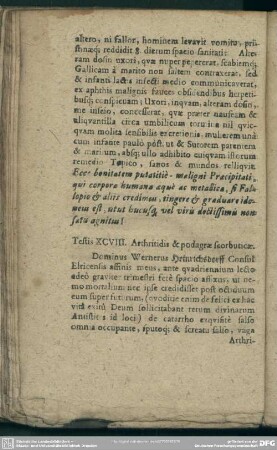 altero, ni fallor, hominem levavit vomitu, pri-
stinæq; reddidit 8. dierum spacio sanitati: Alte-
ram dosin uxori, quæ nuper pepererat, scabiemq;
Gallicam à marito non saltem contraxerat, sed
& infanti lacte infecti medio communicaverat,
ex aphthis malignis fauces obsidendbus herpeti-
busq; conspicuam; Uxori, inquam, alteram dosin,
me inscio, concesserat, quæ præter nauseam &
aliquantilla circa umbilicum tormina nil quic-
quam molita sensibilis excretionis, mulierem unà
cum infante paulò póst, ut & Sutorem parentem
& maritum, absq; ullo adhibito cuiquam istorum
remedio Topico, sanos & mundos relliquit.
Ecce bonitatem putatitiè-maligni Præcipitati,
qui corpora humana æquè ac metallica, si Fal-
lopio & aliis credimus, tingere & graduare ido-
neus est, utut hucusq; vel viris doctissimis non
satis agnitus!
Testis XCVIII. Arthritidis & podagræ scorbuticæ.
Dominus Wernerus Heinrichsdorff Consul
Eleicensis affinis meus, ante quadriennium lecto
adeò graviter trimestri ferè spacio affixus, ut ne-
mo mortalium nec ipse crediddisset post octiduum
eum superfuturum, (evoditie enim de felici ex hac
vitâ exitu Deum sollicitabant rerum divinarum
Antistites id loci) de catarrho exquisitè salso
omnia occupante, sputoq; & screatu salso, vaga
Arthri-